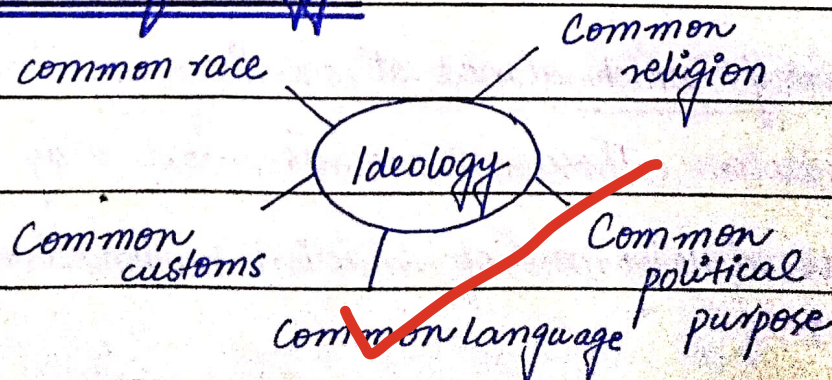 Common
common race
religion
Ideology
Common
customs
Common
political
purpose
Common language